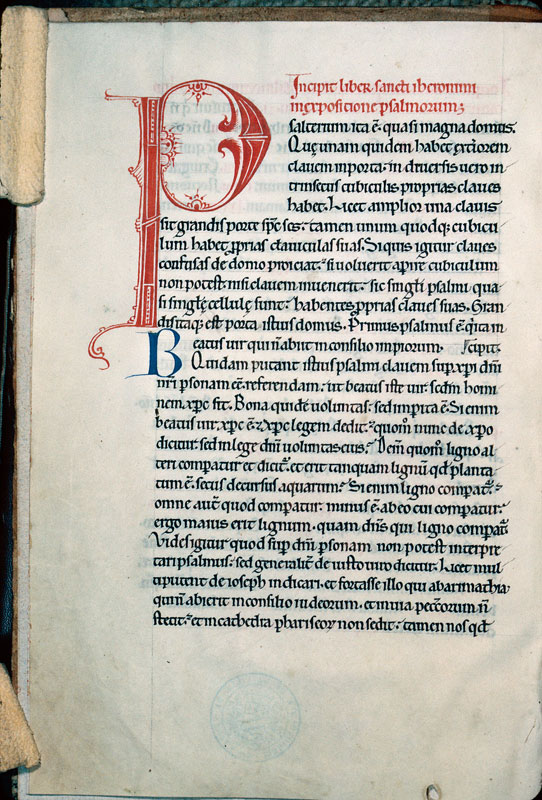 Incipit liber sancti iheronimi
in exposicione psalmorum;
Psalterium ita ē quasi magna domus.
Quę unam quidem habet exteriorem
clauem in porta. in diuersis uero in
trinsecus cubiculis proprias claues
habet. Licet amplior una clauis
sit grandis porte spc scs: tamen unum quodq; cubicu
lum habet pprias clauiculas suas. Si quis igitur claues
confusas de domo proiciat: si uoluerit apire cubiculum
non potest nisi clauem inuenerit. sic singli psalmi qua
si singlę cellulę sunt: habentes pprias claues suas. Gran
dis itaque est porta istius domus. Primus psalmus ē q ita in
cipit.
Beatus uir qui ñ abiit in consilio impiorum.
Quidam putant istius psalmi clauem sup xpi dñi
nri psonam eē referendam: ut beatus iste uir scdm homi
nem xpc sit. Bona quidē uoluntas: sed imperita ē. Si enim
beatus uir xpc ē & xpc legem dedit: quom nunc de xpo
dicitur. sed in lege dni uoluntas eius: Dem quom ligno al
teri comparatur et dicit. et erit tanquam lignū qd planta
tum ē secus decursus aquarum: Si enim ligno comparat:
omne aut quod comparatur. minus ē ab eo cui comparatur:
ergo maius erit lignum. quam dns qui ligno comparat
Vides igitur quod sup dni psonam non potest interpre
tari psalmus: sed generalit de iusto uiro dicitur. Licet mul
ti putent de ioseph indicari. et fortasse illo qui ab arimathia
quī ñ abierit in consilio iudeorum. et in uia peccorum ñ
stetit: et in cathedra phariseor non sedit: tamen nos qd